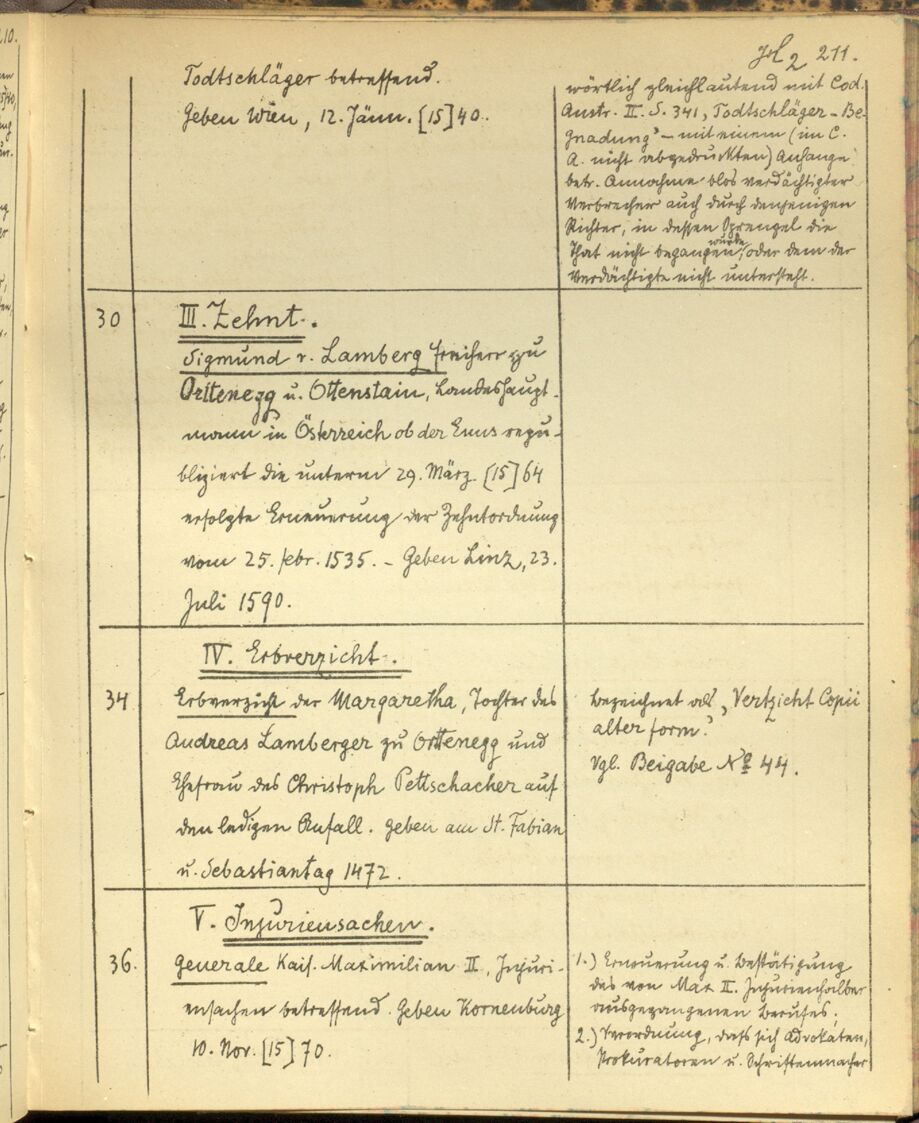 211.
Todtschläger betreffend.
Geben Wien, 12. Jänn. [15]40.
wörtlich gleichlautend mit Cod.
Austr. II. S. 341, „Todtschläger-Be-
gnadung“ – mit einem (im C.
A. nicht abgedruckten) Anhange
betr. Annahme blos verdächtigter
Verbrecher auch durch denjenigen
Richter, in dessen Sprengel die
That nicht begangen wurde, oder dem der
Verdächtigte nicht untersteht.
30
III. Zehnt.
Sigmund v. Lamberg Freiherr zu
Orttenegg u. Ottenstain, Landeshaupt-
mann in Österreich ob der Enns repu-
bliziert die unterm 29. März [15]64
erfolgte Erneuerung der Zehntordnung
vom 25. Febr. 1535. – Geben Linz, 23.
Juli 1590.
IV. Erbverzicht.
34
Erbverzicht der Margaretha, Tochter des
Andreas Lamberger zu Orttenegg und
Ehefrau des Christoph Pettschacher auf
den ledigen Anfall. Geben am St. Fabian
u. Sebastiantag 1472.
bezeichnet als „Vertzicht Copii
alter form.“
Vgl. Beigabe No 44.
V. Injuriensachen.
36.
Generale Kais. Maximilian II, Injuri-
ensachen betreffend. Geben Kornenburg
10. Nov. [15]70.
1.) Erneuerung u. Bestätigung
des von Max II. Injurienhalber
ausgegangenen Berufes;
2.) Verordnung, dass sich Advokaten,
Prokuratoren u. Schriftenmacher